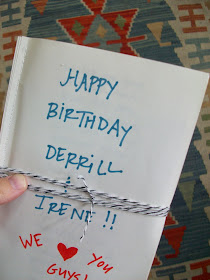 HAPPY
BiRTHDAY
DERRiLL
&
IRENE !!
WE ♥ YOU
GUYS!